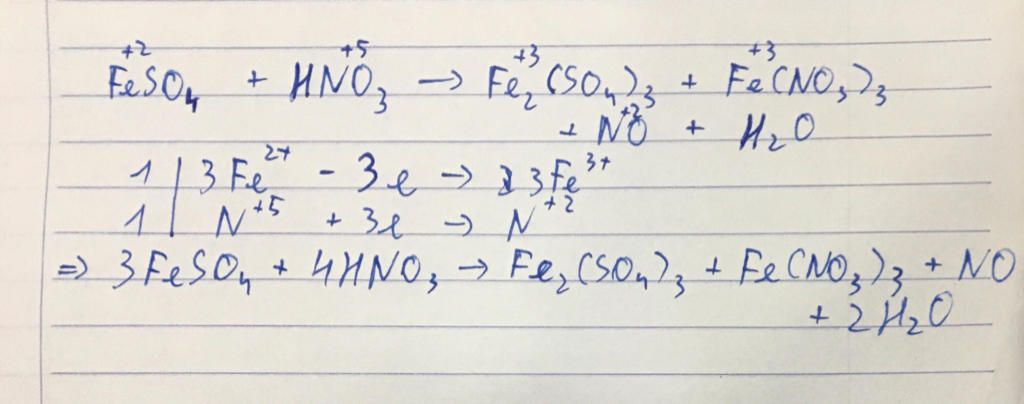 +2 +5 +3 +3
FeSO₄ + HNO₃ → Fe₂(SO₄)₃ + Fe(NO₃)₃
+2
+ NO + H₂O
1 | 3Fe²⁺ - 3e → 3Fe³⁺
1 | N⁺⁵ + 3e → N⁺²
⇒ 3FeSO₄ + 4HNO₃ → Fe₂(SO₄)₃ + Fe(NO₃)₃ + NO
+ 2H₂O